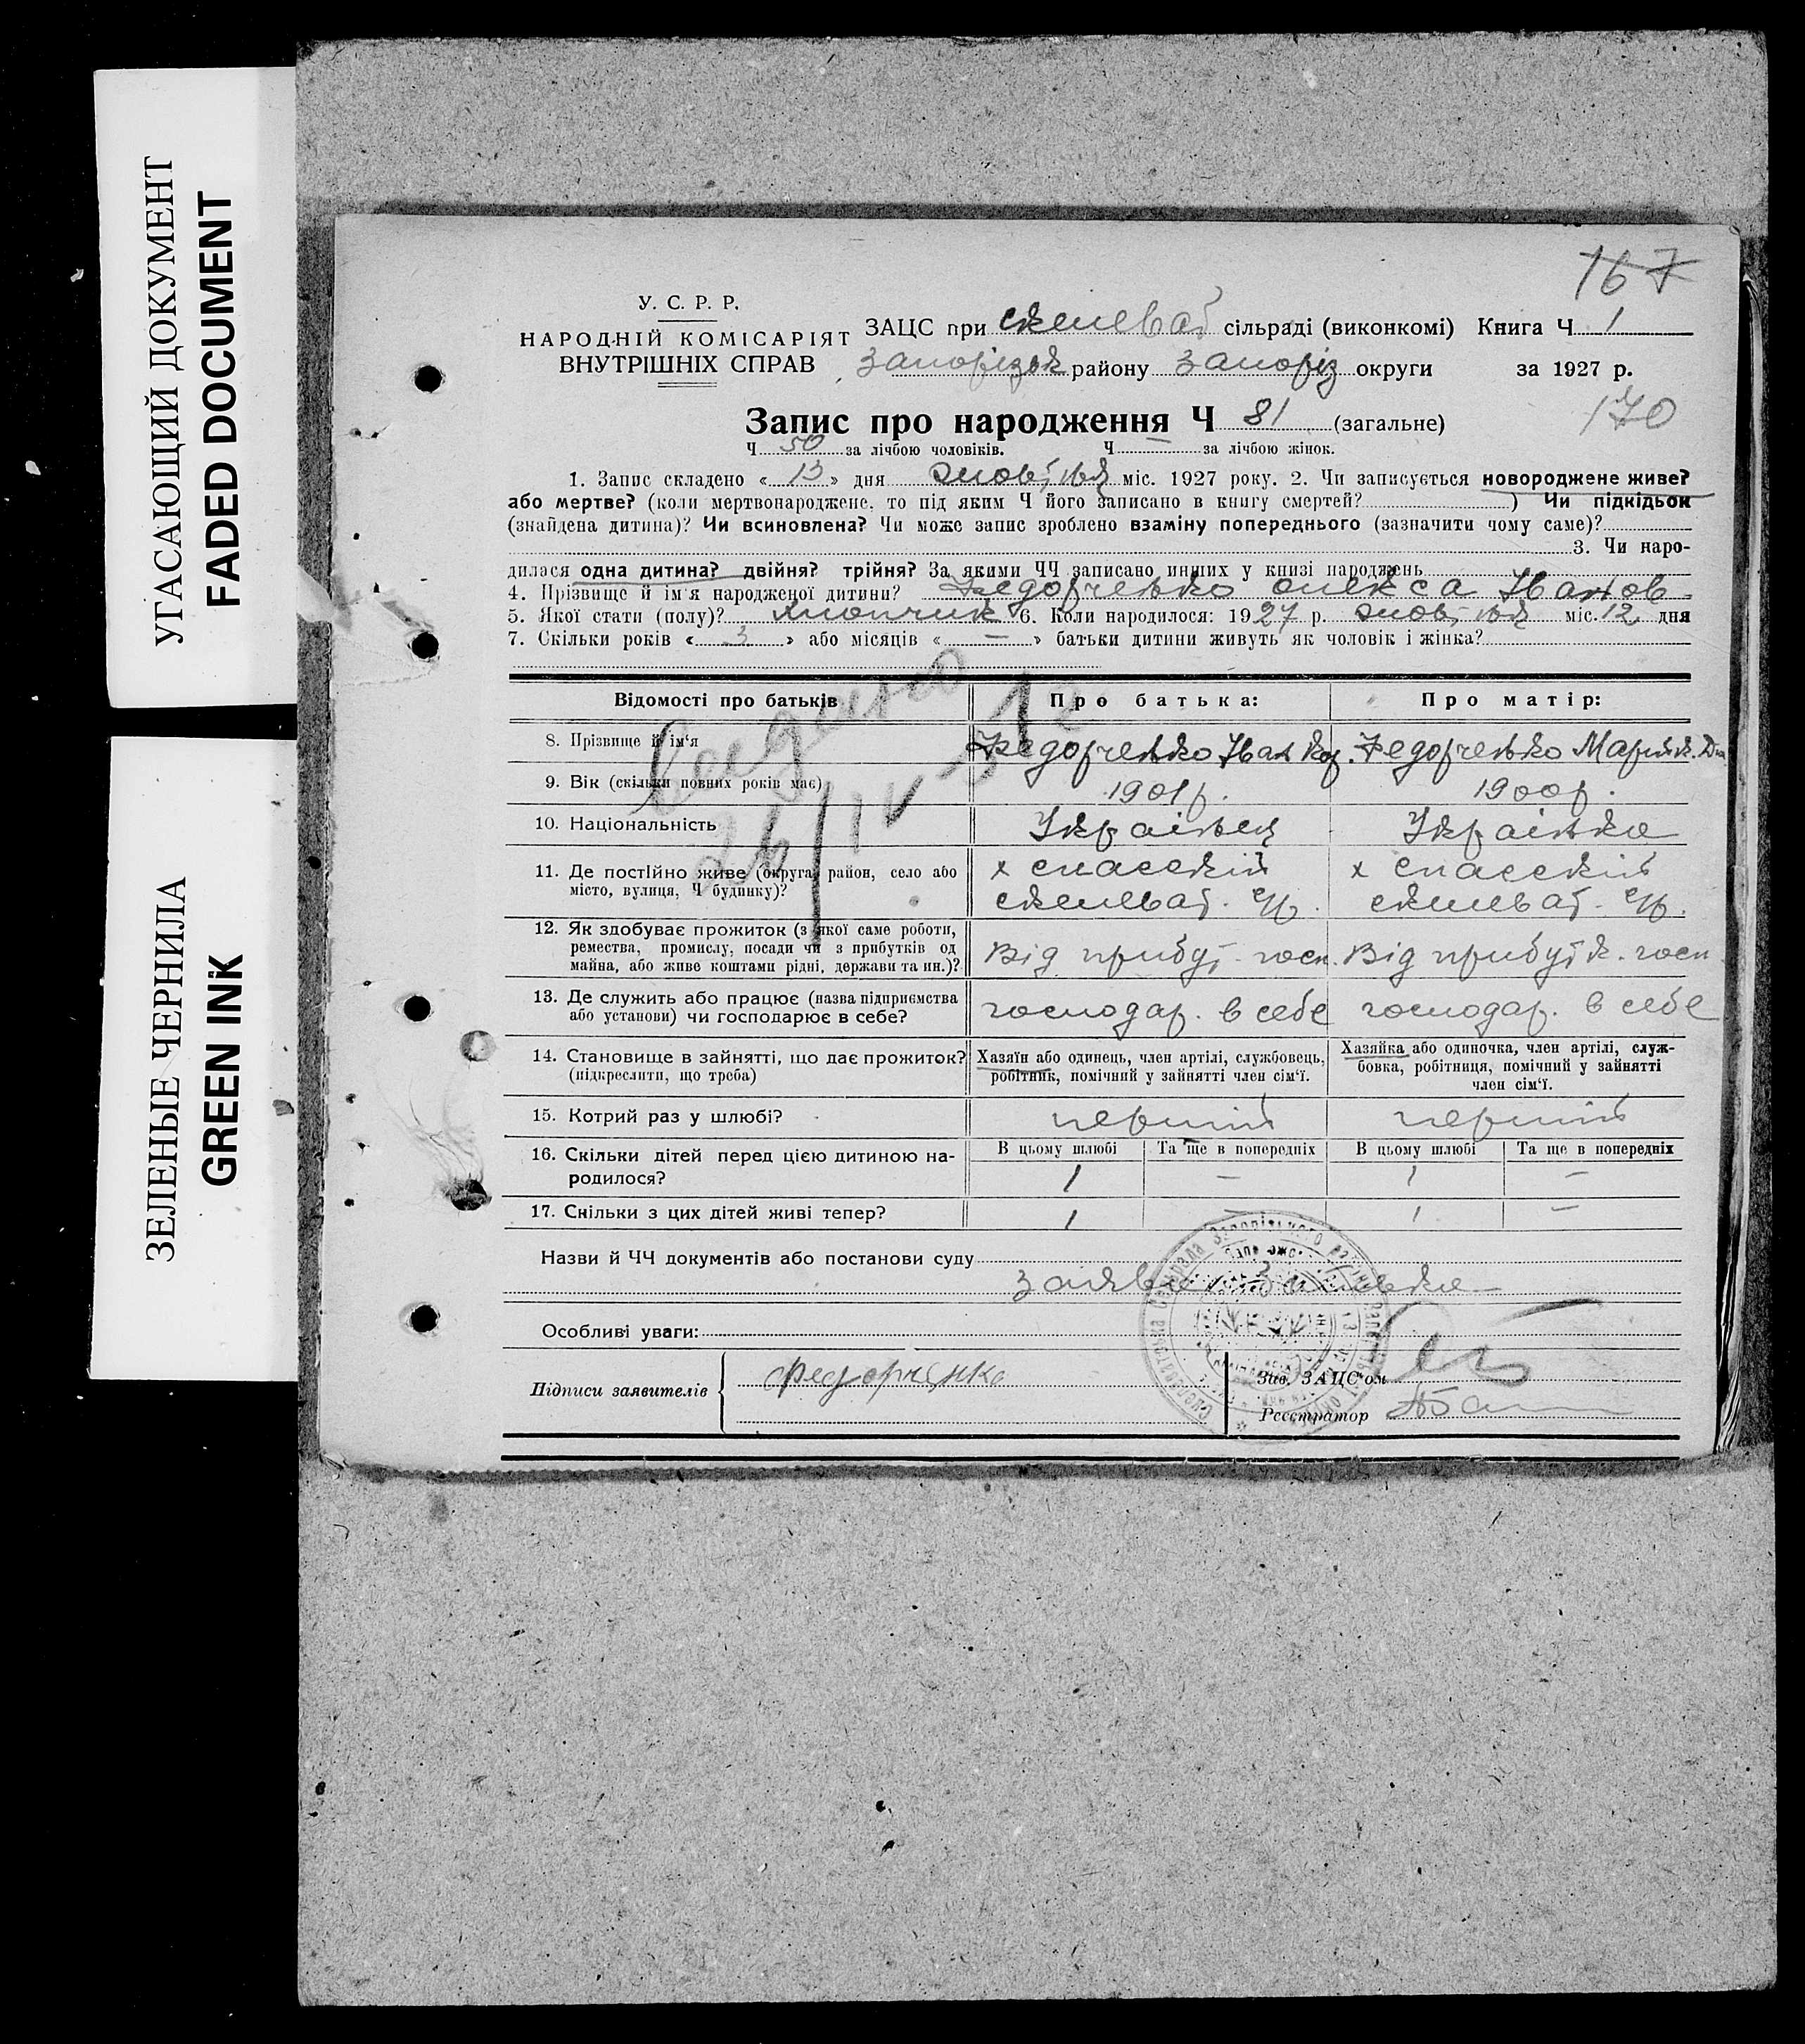 УГАСАЮЩИЙ ДОКУМЕНТ
FADED DOCUMENT
ЗЕЛЕНЫЕ ЧЕРНИЛА
GREEN INK
167
У. С. Р. Р.
НАРОДНІЙ КОМІСАРІЯТ
ВНУТРІШНІХ СПРАВ
ЗАЦС при скелеват сільраді (виконкомі) Книга Ч 1
Запорізьк району Запоріз округи за 1927 р.
Запис про народження Ч 81 (загальне)
170
Ч 50 за лічбою чоловіків. Ч — за лічбою жінок.
1. Запис складено « 13 » дня жовтня міс. 1927 року. 2. Чи записується новороджене живе?
або мертве? (коли мертвонароджене, то під яким Ч його записано в книгу смертей? ) Чи підкідьок
(знайдена дитина)? Чи всиновлена? Чи може запис зроблено взаміну попереднього (зазначити чому саме)?
3. Чи наро-
дилася одна дитина? двійня? трійня? За якими ЧЧ записано инших у книзі народжень
4. Прізвище й ім'я народженої дитини? Федорченко олекса Іванов
5. Якої стати (полу)? хлопчик 6. Коли народилося: 1927 р. жовтня міс. 12 дня
7. Скільки років « 3 » або місяців « — » батьки дитини живуть як чоловік і жінка?
Відомості про батьків Про батька: Про матір:
8. Прізвище й ім'я Федорченко Іван Федорченко Мария
9. Вік (скільки повних років має) 1901 р. 1900 р.
10. Національність Українец Українка
11. Де постійно живе (округа, район, село або
місто, вулиця, Ч будинку)?
х спасский х спасский
скелеват. с/р. скелеват. с/р.
12. Як здобуває прожиток (з якої саме роботи,
ремества, промислу, посади чи з прибутків од
майна, або живе коштами рідні, держави та ин.)?
Від прибут. госп. Від прибутк. госп
13. Де служить або працює (назва підприємства
або установи) чи господарює в себе?
господар. в себе господар. в себе
14. Становище в зайнятті, що дає прожиток?
(підкреслити, що треба)
Хазяїн або одинець, член артілі, службовець,
робітник, помічний у зайнятті член сім'ї.
Хазяйка або одиночка, член артілі, служ-
бовка, робітниця, помічний у зайнятті
член сім'ї.
15. Котрий раз у шлюбі? перший перший
16. Скільки дітей перед цією дитиною на-
родилося?
В цьому шлюбі Та ще в попередніх В цьому шлюбі Та ще в попередніх
1 — 1 —
17. Скільки з цих дітей живі тепер? 1 — 1 —
Назви й ЧЧ документів або постанови суду
заява
Особливі уваги:
Підписи заявителів Федорченко
Зав. ЗАЦС'ом
Реєстратор